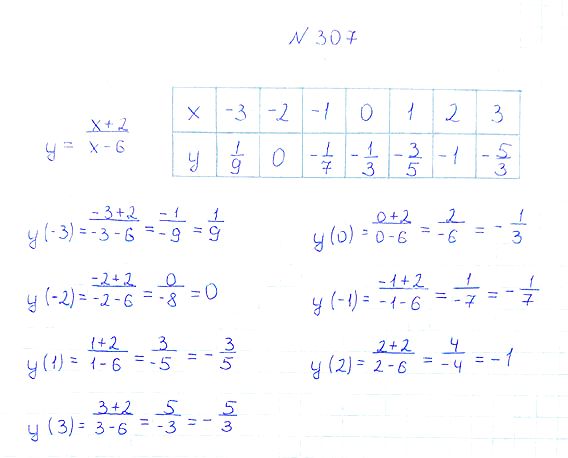 N 307
y = (x+2)/(x-6)
x -3 -2 -1 0 1 2 3
y 1/9 0 -1/7 -1/3 -3/5 -1 -5/3
y(-3) = (-3+2)/(-3-6) = (-1)/(-9) = 1/9
y(0) = (0+2)/(0-6) = 2/(-6) = -1/3
y(-2) = (-2+2)/(-2-6) = 0/(-8) = 0
y(-1) = (-1+2)/(-1-6) = 1/(-7) = -1/7
y(1) = (1+2)/(1-6) = 3/(-5) = -3/5
y(2) = (2+2)/(2-6) = 4/(-4) = -1
y(3) = (3+2)/(3-6) = 5/(-3) = -5/3